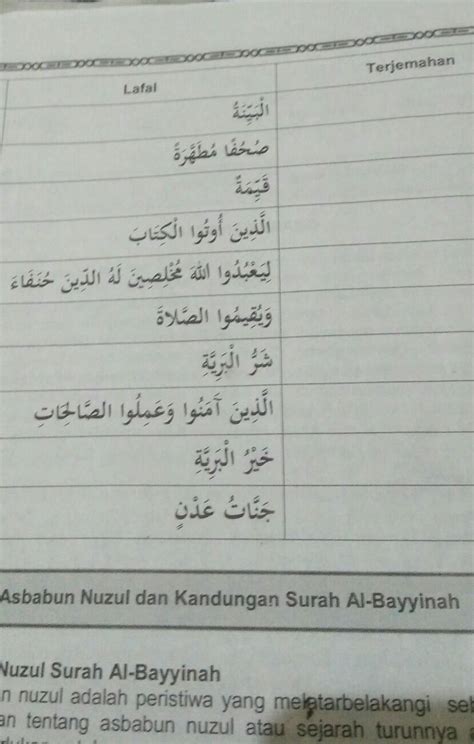 Lafal
Terjemahan
الْبَيِّنَةُ
صُحُفًا مُطَهَّرَةً
قَيِّمَةٌ
الَّذِينَ أُوتُوا الْكِتَابَ
لِيَعْبُدُوا اللهَ مُخْلِصِينَ لَهُ الدِّينَ حُنَفَاءَ
وَيُقِيمُوا الصَّلَاةَ
شَرُّ الْبَرِيَّةِ
الَّذِينَ آمَنُوا وَعَمِلُوا الصَّالِحَاتِ
خَيْرُ الْبَرِيَّةِ
جَنَّاتُ عَدْنٍ
Asbabun Nuzul dan Kandungan Surah Al-Bayyinah
Nuzul Surah Al-Bayyinah
n nuzul adalah peristiwa yang melatarbelakangi seb
an tentang asbabun nuzul atau sejarah turunnya